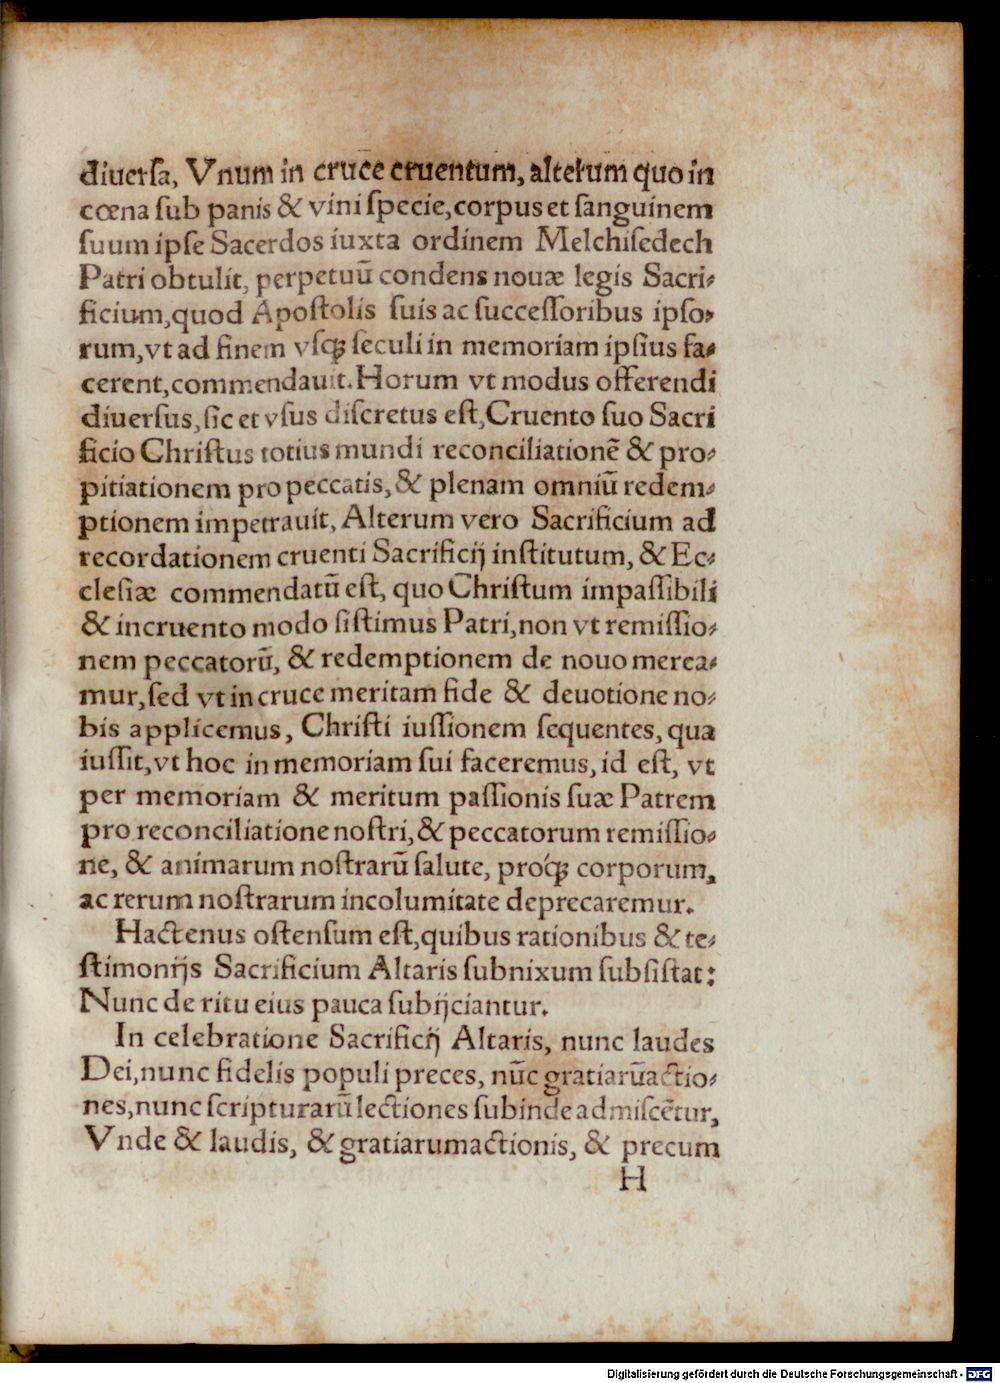 diuerſa, Vnum in cruce cruentum, alterum quo in
cœna ſub panis & vini ſpecie, corpus et ſanguinem
ſuum ipſe Sacerdos iuxta ordinem Melchiſedech
Patri obtulit, perpetuū condens nouæ legis Sacri⸗
ficium, quod Apoſtolis ſuis ac ſucceſſoribus ipſo⸗
rum, vt ad finem vſqꝫ ſeculi in memoriam ipſius fa⸗
cerent, commendauit. Horum vt modus offerendi
diuerſus, ſic et vſus diſcretus eſt, Cruento ſuo Sacri
ficio Chriſtus totius mundi reconciliationē & pro⸗
pitiationem pro peccatis, & plenam omniū redem⸗
ptionem impetrauit, Alterum vero Sacrificium ad
recordationem cruenti Sacrificij inſtitutum, & Ec⸗
cleſiæ commendatū eſt, quo Chriſtum impaſſibili
& incruento modo ſiſtimus Patri, non vt remiſſio⸗
nem peccatorū, & redemptionem de nouo merea⸗
mur, ſed vt in cruce meritam fide & deuotione no⸗
bis applicemus, Chriſti iuſſionem ſequentes, qua
iuſſit, vt hoc in memoriam ſui faceremus, id eſt, vt
per memoriam & meritum paſſionis ſuæ Patrem
pro reconciliatione noſtri, & peccatorum remiſſio⸗
ne, & animarum noſtrarū ſalute, proqꝫ corporum,
ac rerum noſtrarum incolumitate deprecaremur.
Hactenus oſtenſum eſt, quibus rationibus & te⸗
ſtimonijs Sacrificium Altaris ſubnixum ſubſiſtat:
Nunc de ritu eius pauca ſubijciantur.
In celebratione Sacrificij Altaris, nunc laudes
Dei, nunc fidelis populi preces, nūc gratiarūactio⸗
nes, nunc ſcripturarū lectiones ſubinde admiſcētur,
Vnde & laudis, & gratiarumactionis, & precum
H
Digitalisierung gefördert durch die Deutsche Forschungsgemeinschaft - DFG